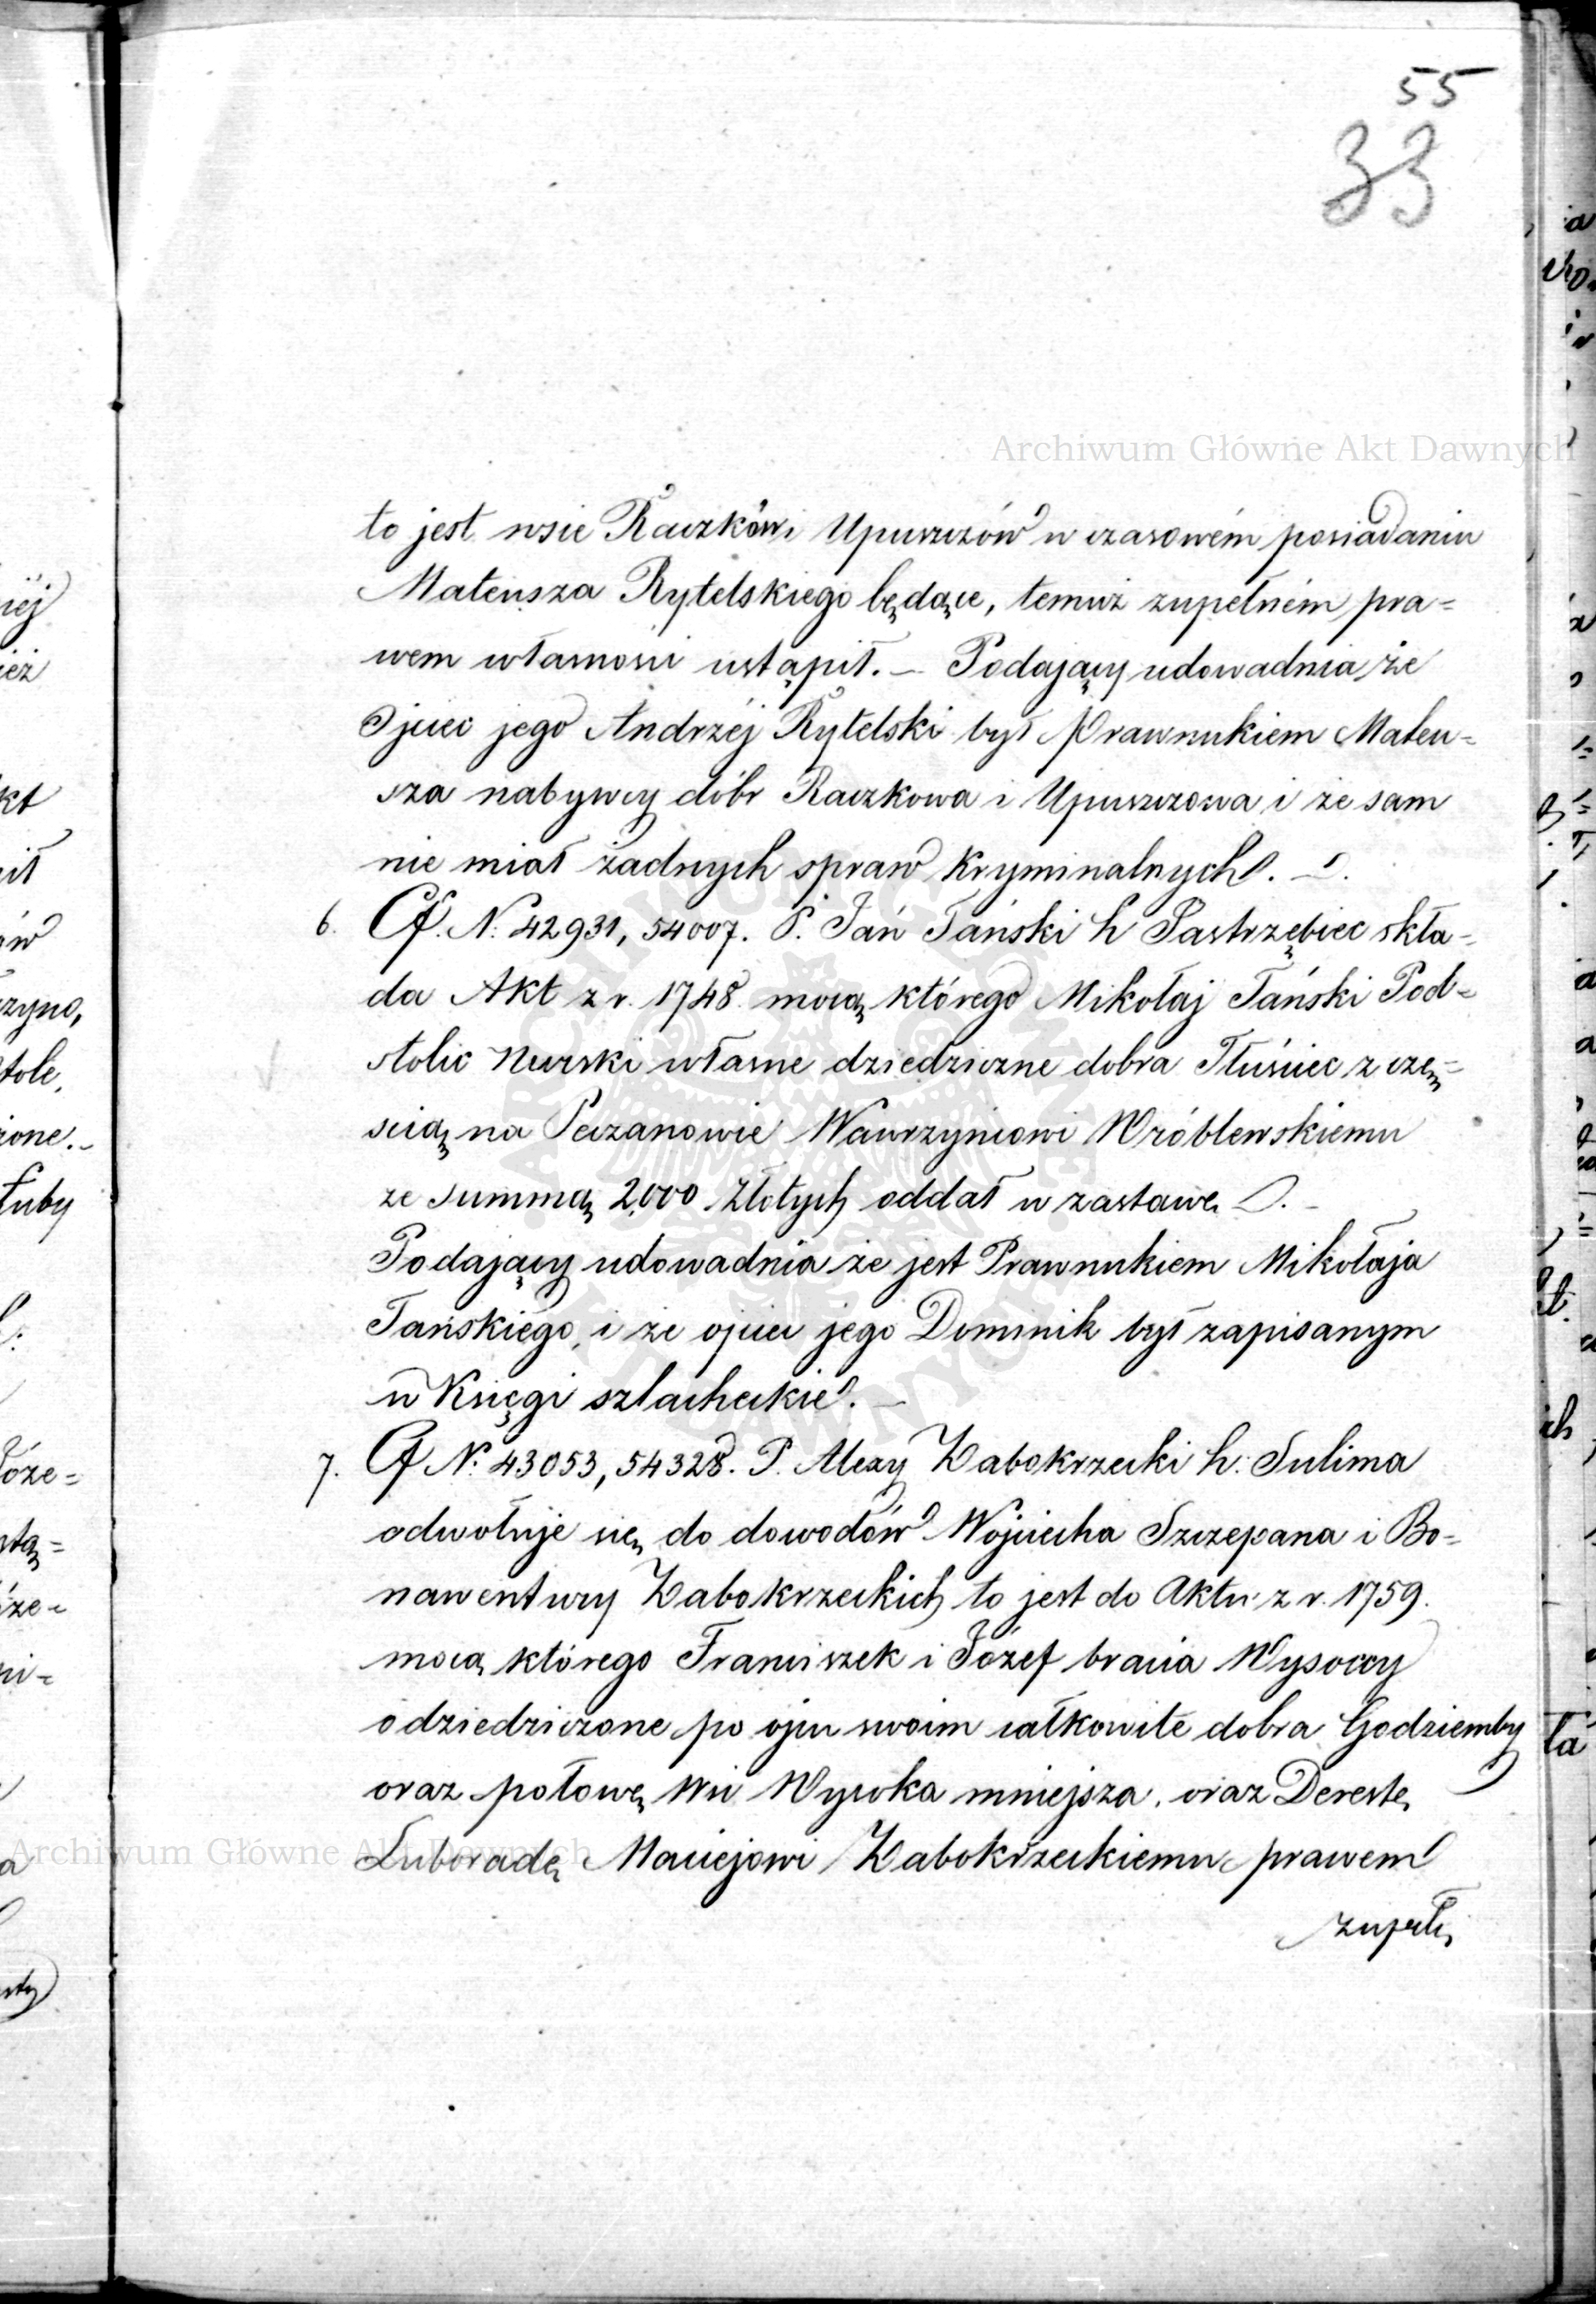 55
33
Archiwum Główne Akt Dawnych
to jest wsie Raczków i Upuszczów w czasowém posiadaniu
Mateusza Rytelskiego będące, temuż zupełném pra=
wem własności ustąpił. — Podający udowadnia że
Ojciec jego Andrzéj Rytelski był Prawnukiem Mateu=
sza nabywcy dóbr Raczkowa i Upuszczowa i że sam
nie miał żadnych spraw kryminalnych. —
6. Cf. N: 42931, 54007. P. Jan Tański h Jastrzębiec skła=
da Akt z r. 1748 mocą którego Mikołaj Tański Pod=
stolic Nurski własne dziedziczne dobra Tłuściec z czę=
scią na Peczanowie Wawrzyńcowi Wróblewskiemu
ze summą 2,000 Złotych oddał w zastawę. —
Podający udowadnia że jest Prawnukiem Mikołaja
Tańskiego, i że ojciec jego Dominik był zapisanym
w Księgi szlacheckie. —
7. Cf N: 43053, 54328. P. Alexy Zabokrzecki h: Sulima
odwołuje się do dowodów Wojciecha Szczepana i Bo=
nawentury Zabokrzeckich to jest do Aktu z r. 1759.
mocą którego Franciszek i Józef bracia Wysoccy
odziedziczone po ojcu swoim całkowite dobra Godziemby
oraz połowę Wsi Wysoka mniejsza, oraz Dereste
Luboradę Maciejowi Zabokrzeckiemu prawem
zupeł
Archiwum Główne Akt Dawnych